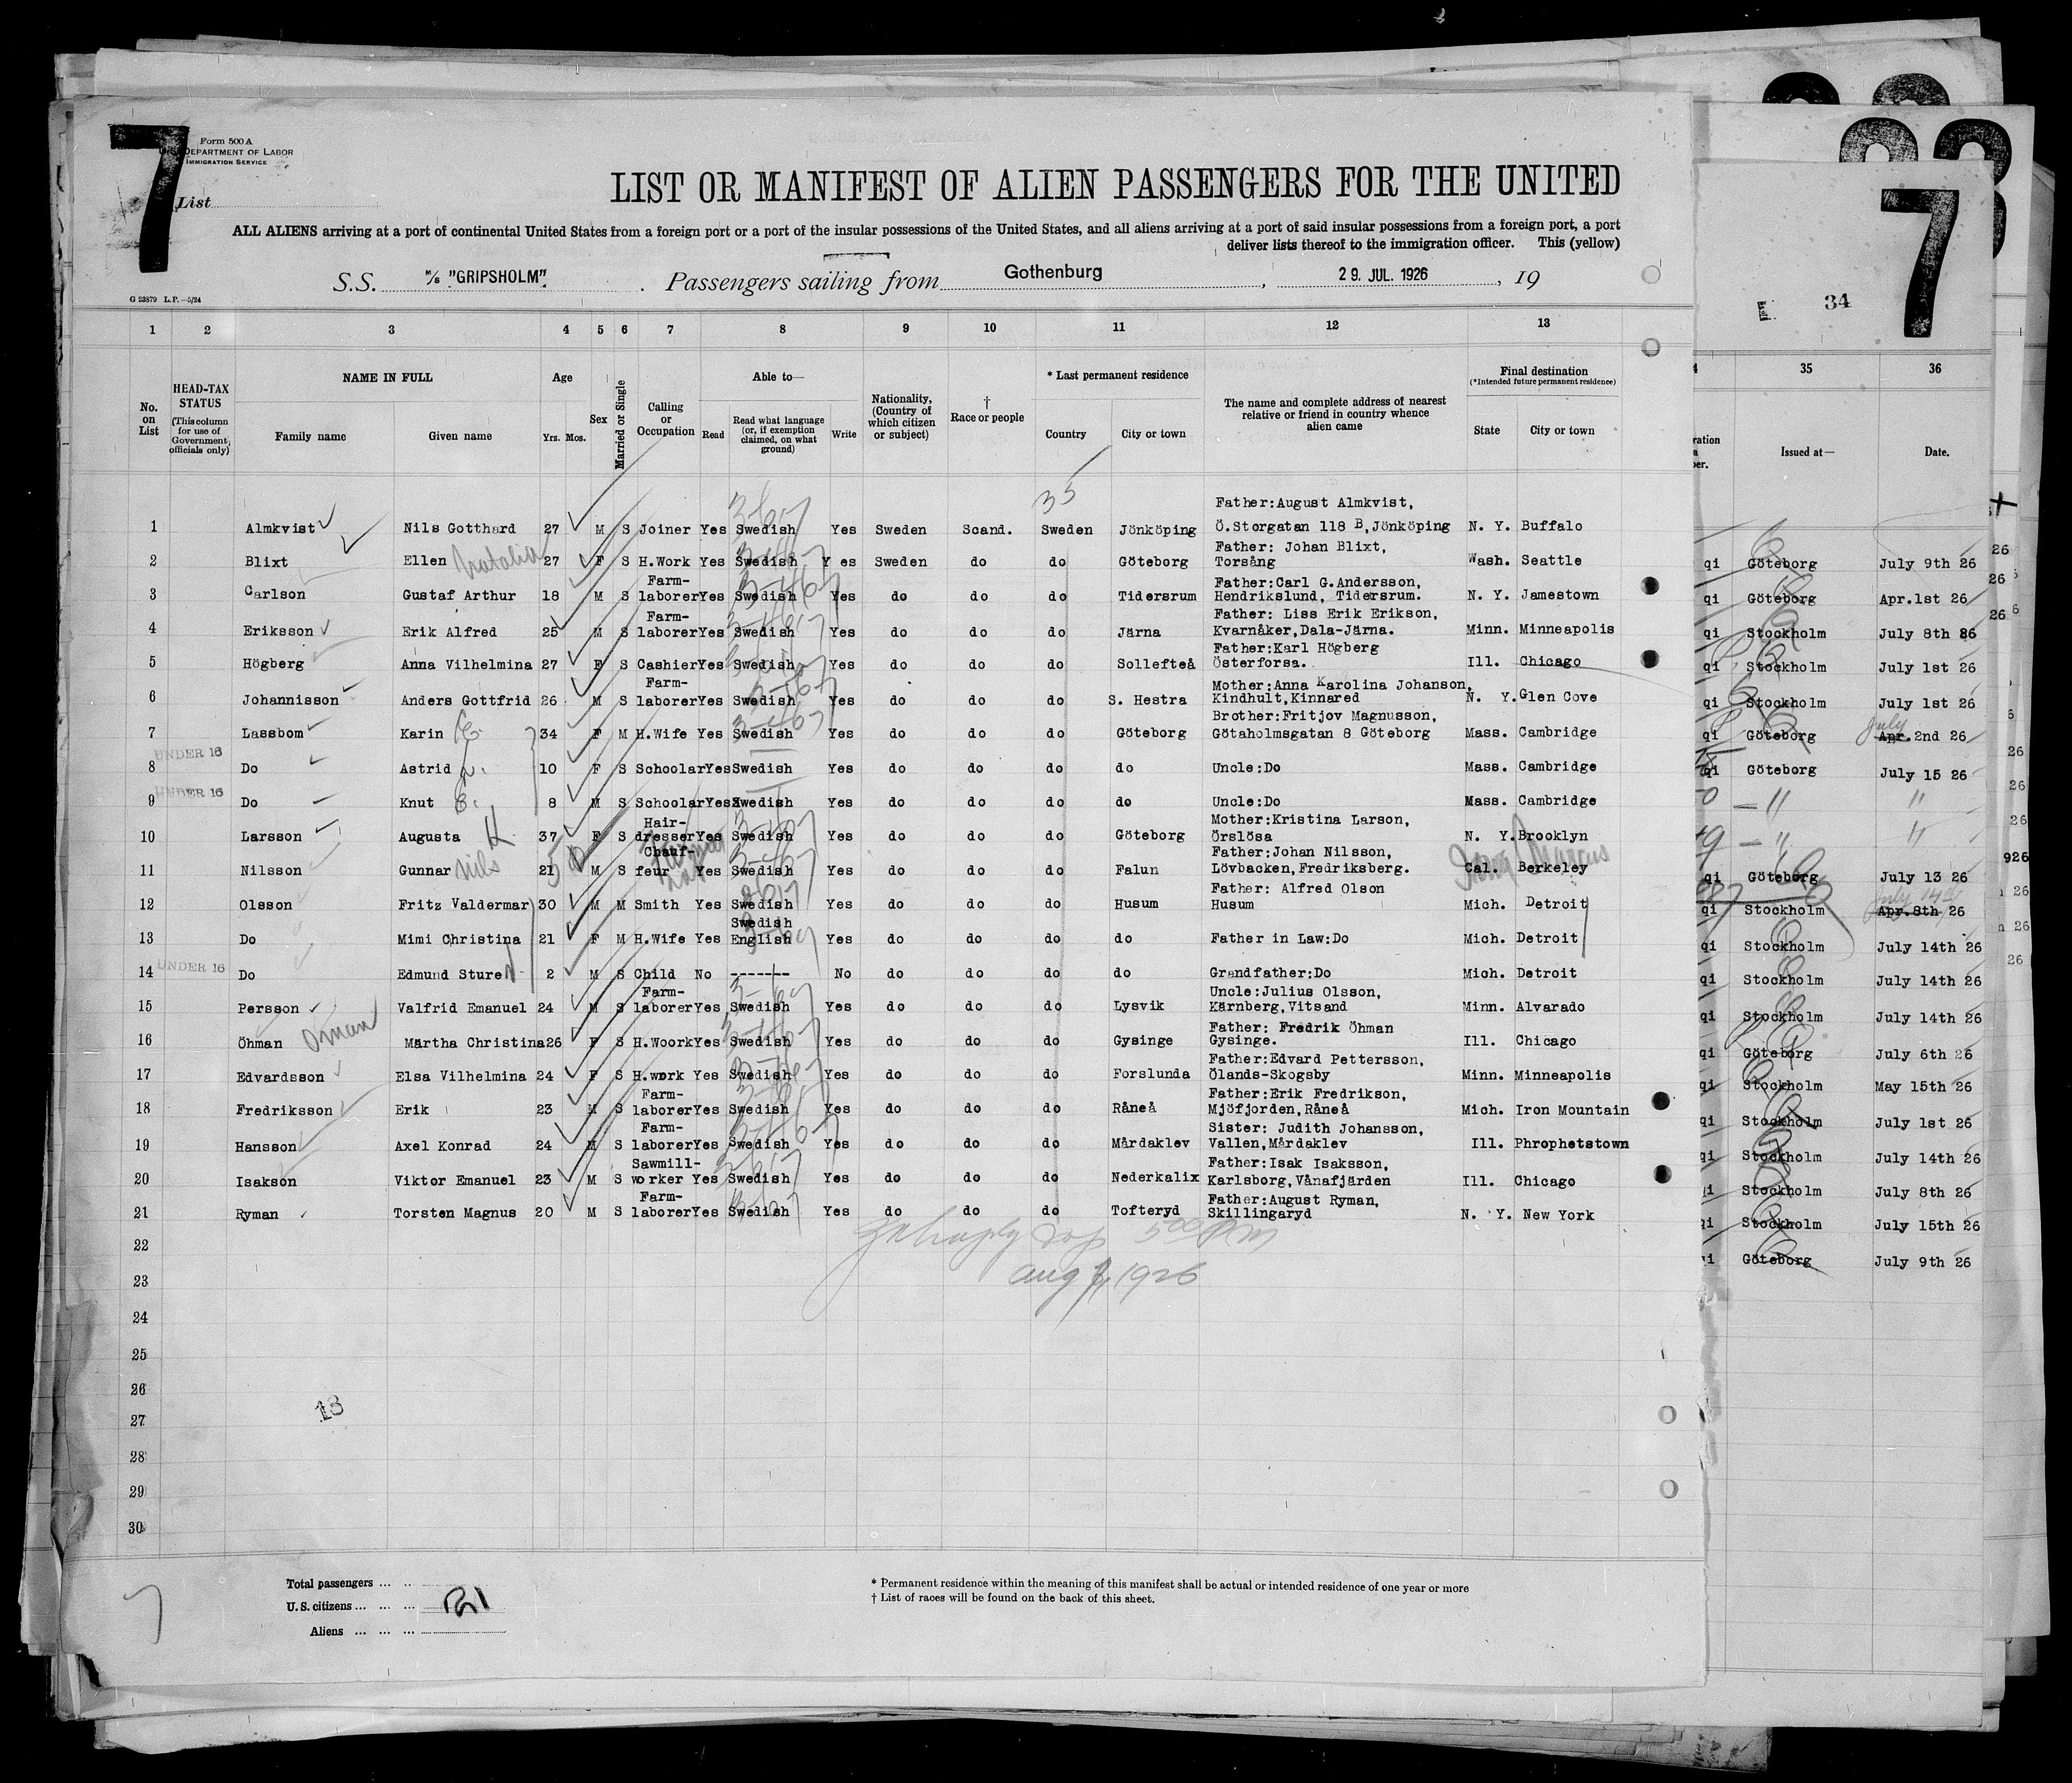 7
Form 500 A
U.S. DEPARTMENT OF LABOR
IMMIGRATION SERVICE
List
LIST OR MANIFEST OF ALIEN PASSENGERS FOR THE UNITED
ALL ALIENS arriving at a port of continental United States from a foreign port or a port of the insular possessions of the United States, and all aliens arriving at a port of said insular possessions from a foreign port, a port
deliver lists thereof to the immigration officer. This (yellow)
S.S. M/S "GRIPSHOLM". Passengers sailing from Gothenburg, 29. JUL. 1926, 19
G 23879 L.P.—5/24
1 2 3 4 5 6 7 8 9 10 11 12 13
No. on List
HEAD-TAX STATUS
(This column for use of Government officials only)
NAME IN FULL
Family name Given name
Age
Yrs. Mos.
Sex
Married or Single
Calling or Occupation
Able to—
Read
Read what language (or, if exemption claimed, on what ground)
Write
Nationality, (Country of which citizen or subject)
† Race or people
* Last permanent residence
Country City or town
The name and complete address of nearest relative or friend in country whence alien came
Final destination
(*Intended future permanent residence)
State City or town
35
Father:August Almkvist,
1 Almkvist Nils Gotthard 27 M S Joiner Yes Swedish Yes Sweden Scand. Sweden Jönköping Ö.Storgatan 118 B,Jönköping N. Y. Buffalo
Father: Johan Blixt,
2 Blixt Ellen Natalia 27 F S H.Work Yes Swedish Y es Sweden do do Göteborg Torsång Wash. Seattle
Farm- Father:Carl G.Andersson,
3 Carlson Gustaf Arthur 18 M S laborer Yes Swedish Yes do do do Tidersrum Hendrikslund, Tidersrum. N. Y. Jamestown
Farm- Father: Liss Erik Erikson,
4 Eriksson Erik Alfred 25 M S laborer Yes Swedish Yes do do do Järna Kvarnåker,Dala-Järna. Minn. Minneapolis
Father:Karl Högberg
5 Högberg Anna Vilhelmina 27 F S Cashier Yes Swedish Yes do do do Sollefteå Österforsa. Ill. Chicago
Farm- Mother:Anna Karolina Johanson,
6 Johannisson Anders Gottfrid 26 M S laborer Yes Swedish Yes do do do S. Hestra Kindhult,Kinnared N. Y. Glen Cove
Brother:Fritjov Magnusson,
7 Lassbom Karin 34 F M H.Wife Yes Swedish Yes do do do Göteborg Götaholmsgatan 8 Göteborg Mass. Cambridge
UNDER 16
8 Do Astrid 10 F S Schoolar Yes Swedish Yes do do do do Uncle:Do Mass. Cambridge
UNDER 16
9 Do Knut 8 M S Schoolar Yes Swedish Yes do do do do Uncle:Do Mass. Cambridge
Hair- Mother:Kristina Larson,
10 Larsson Augusta 37 F S dresser Yes Swedish Yes do do do Göteborg Örslösa N. Y. Brooklyn
Chauf- Father:Johan Nilsson,
11 Nilsson Gunnar Nils 21 M S feur Yes Swedish Yes do do do Falun Lövbacken,Fredriksberg. Cal. Berkeley
Father: Alfred Olson
12 Olsson Fritz Valdermar 30 M M Smith Yes Swedish Yes do do do Husum Husum Mich. Detroit
Swedish
13 Do Mimi Christina 21 F M H.Wife Yes English Yes do do do do Father in Law:Do Mich. Detroit
UNDER 16
14 Do Edmund Sture 2 M S Child No ------- No do do do do Grandfather:Do Mich. Detroit
Farm- Uncle:Julius Olsson,
15 Persson Valfrid Emanuel 24 M S laborer Yes Swedish Yes do do do Lysvik Kärnberg,Vitsand Minn. Alvarado
Father: Fredrik Öhman
16 Öhman Oman Märtha Christina 26 F S H.Woork Yes Swedish Yes do do do Gysinge Gysinge. Ill. Chicago
Father:Edvard Pettersson,
17 Edvardsson Elsa Vilhelmina 24 F S H.work Yes Swedish Yes do do do Forslunda Ölands-Skogsby Minn. Minneapolis
Farm- Father:Erik Fredrikson,
18 Fredriksson Erik 23 M S laborer Yes Swedish Yes do do do Råneå Mjöfjorden,Råneå Mich. Iron Mountain
Farm- Sister: Judith Johansson,
19 Hansson Axel Konrad 24 M S laborer Yes Swedish Yes do do do Mårdaklev Vallen,Mårdaklev Ill. Phrophetstown
Sawmill- Father:Isak Isaksson,
20 Isakson Viktor Emanuel 23 M S worker Yes Swedish Yes do do do Nederkalix Karlsborg,Vånafjärden Ill. Chicago
Farm- Father:August Ryman,
21 Ryman Torsten Magnus 20 M S laborer Yes Swedish Yes do do do Tofteryd Skillingaryd N. Y. New York
22
Aug 7, 1926
23
24
25
26
27
28
29
30
13
Total passengers ... ..
U.S. citizens ... ... ... 21
Aliens ... ... ...
* Permanent residence within the meaning of this manifest shall be actual or intended residence of one year or more
† List of races will be found on the back of this sheet.
7
7
34
35 36
Issued at— Date.
qi Göteborg July 9th 26
qi Göteborg Apr.1st 26
qi Stockholm July 8th 26
qi Stockholm July 1st 26
qi Stockholm July 1st 26
July
qi Göteborg Apr. 2nd 26
qi Göteborg July 15 26
— " "
— " "
qi Göteborg July 13 26
July 14
qi Stockholm Apr.8th 26
qi Stockholm July 14th 26
qi Stockholm July 14th 26
qi Stockholm July 14th 26
qi Göteborg July 6th 26
qi Stockholm May 15th 26
qi Stockholm July 1st 26
qi Stockholm July 14th 26
qi Stockholm July 8th 26
qi Stockholm July 15th 26
qi Göteborg July 9th 26